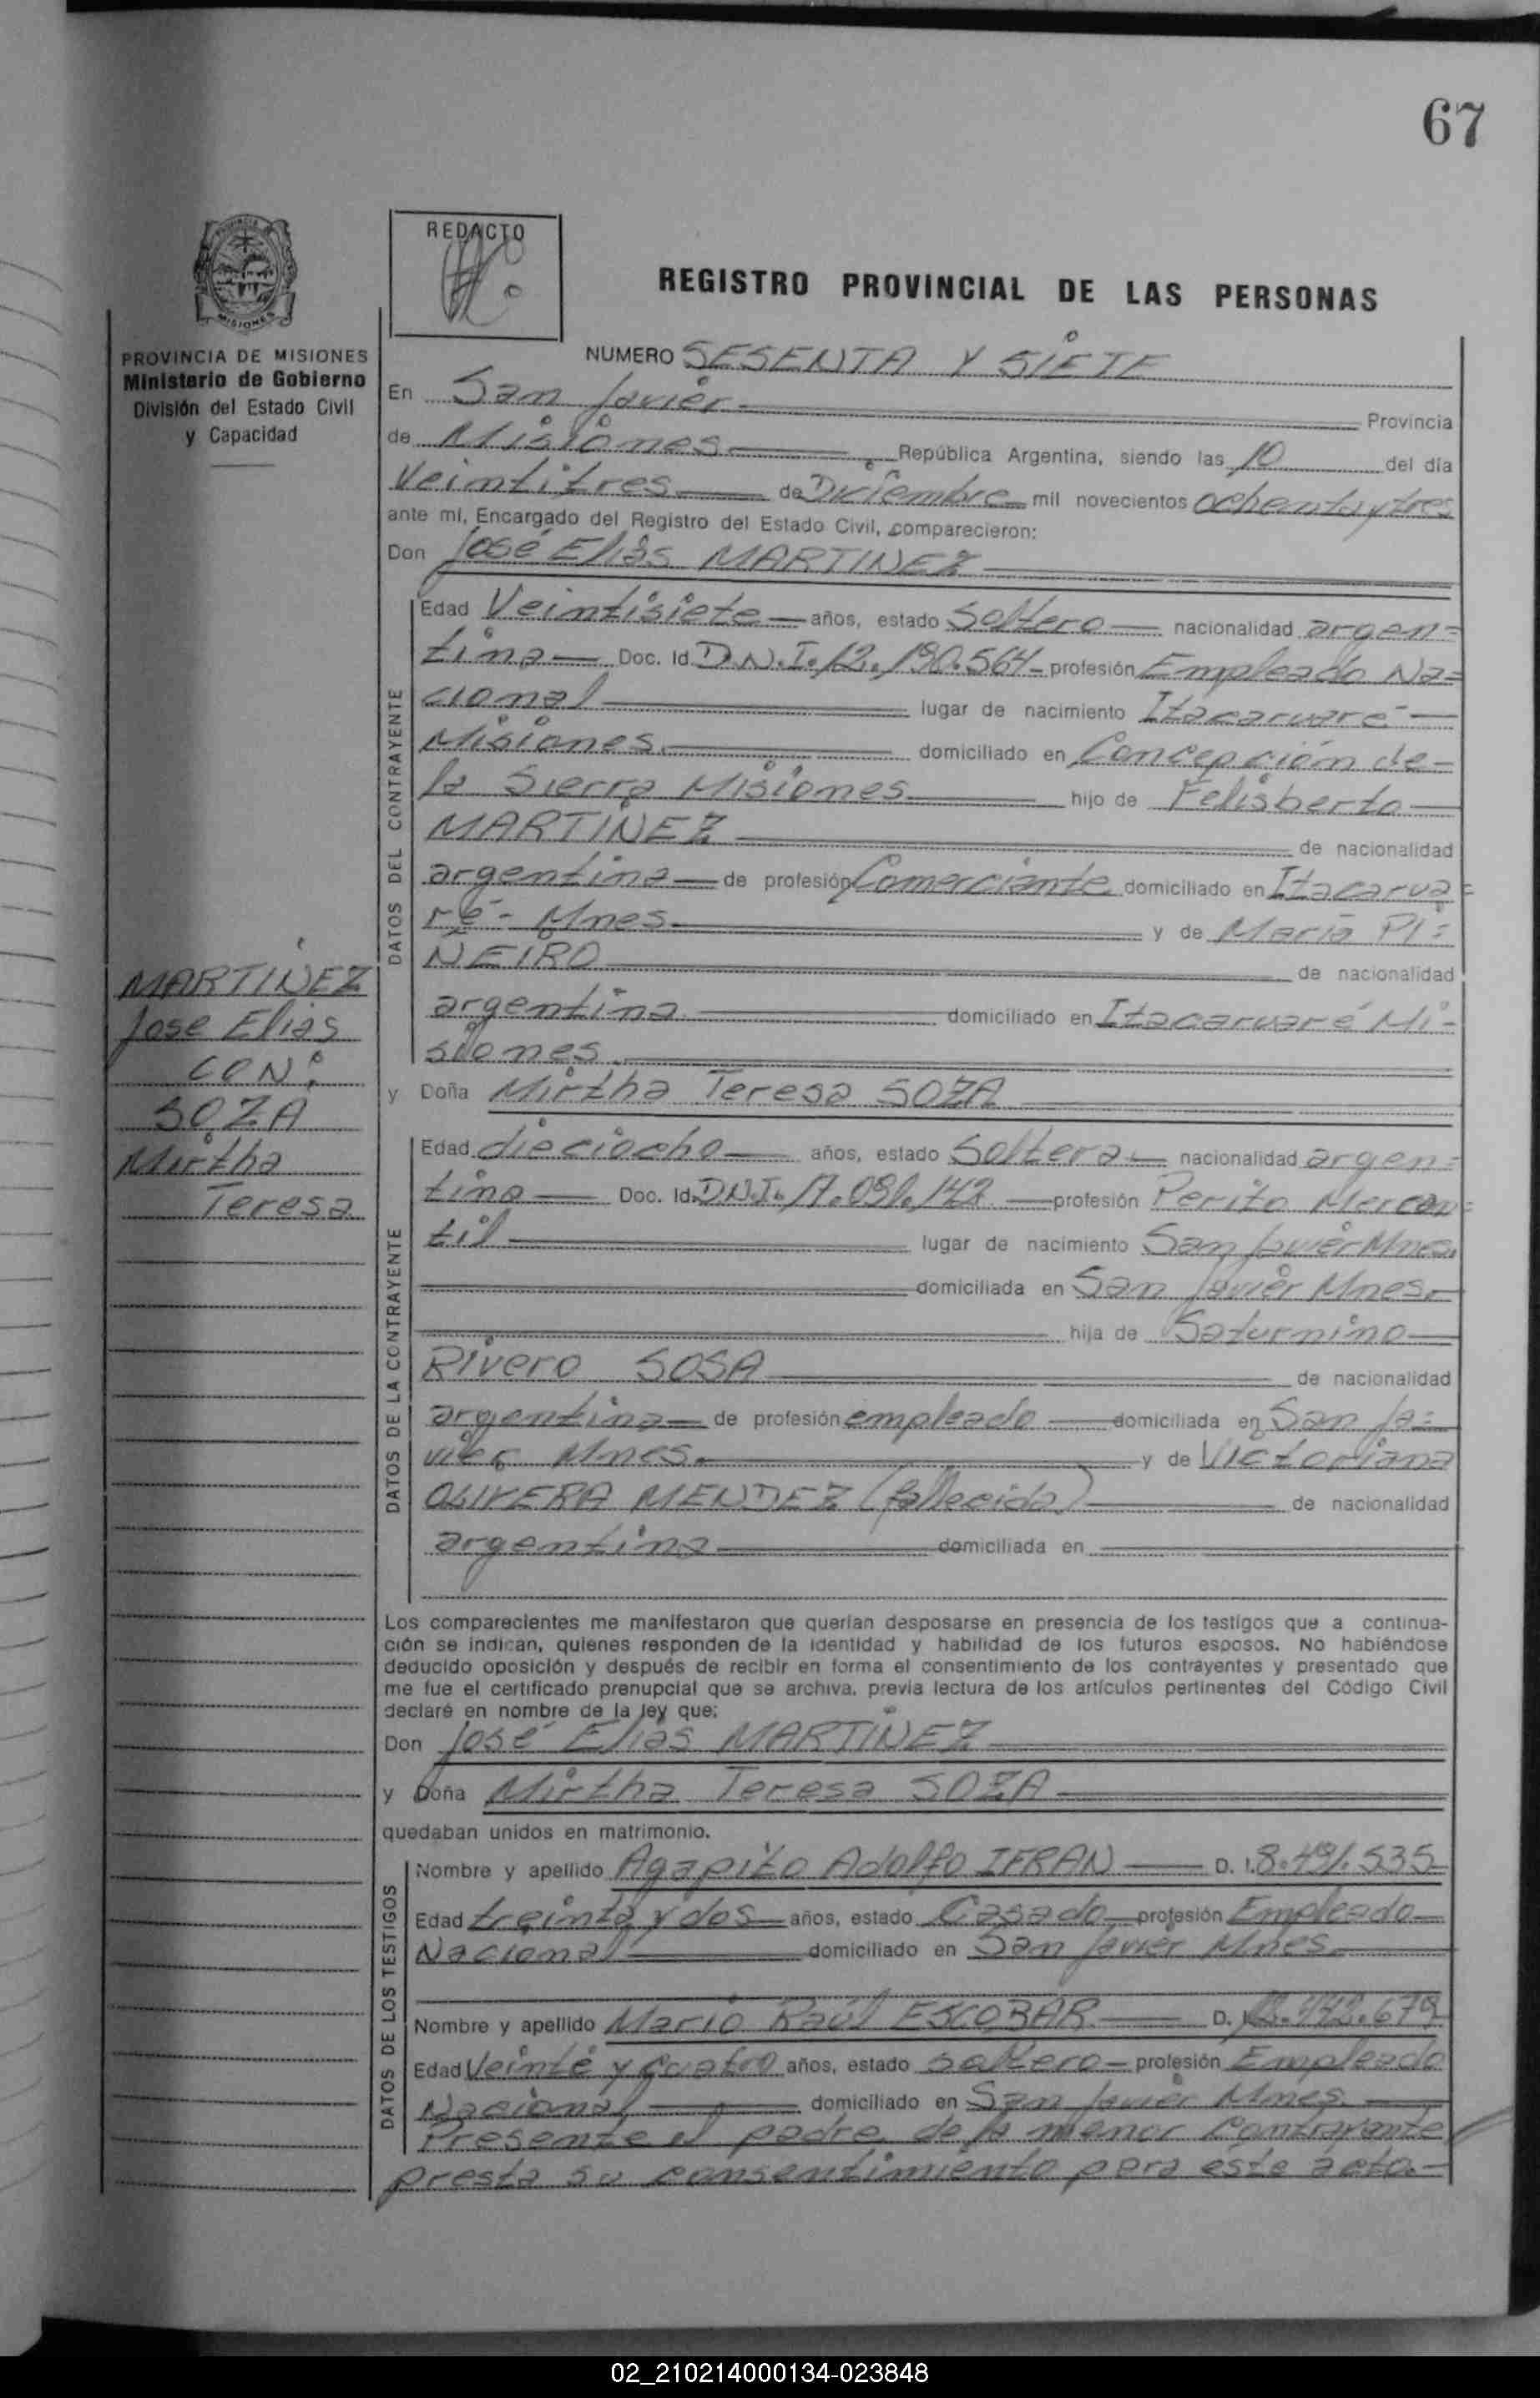 67
REDACTO
REGISTRO PROVINCIAL DE LAS PERSONAS
PROVINCIA DE MISIONES
Ministerio de Gobierno
División del Estado Civil
y Capacidad
NUMERO SESENTA Y SIETE
En San Javier Provincia
de Misiones, República Argentina, siendo las 10 del día
Veintitres de Diciembre mil novecientos ochenta y tres
ante mí, Encargado del Registro del Estado Civil, comparecieron:
Don José Elías MARTINEZ
DATOS DEL CONTRAYENTE
Edad Veintisiete años, estado Soltero nacionalidad argen=
tina Doc. Id. D.N.I. 12.190.564 profesión Empleado Na=
cional lugar de nacimiento Itacaruaré
Misiones domiciliado en Concepción de
la Sierra Misiones hijo de Felisberto
MARTINEZ de nacionalidad
argentina de profesión Comerciante domiciliado en Itacarua=
ré - Mnes y de María PI=
NEIRO de nacionalidad
argentina domiciliado en Itacaruaré Mi=
siones.
MARTINEZ
Jose Elias
CON:
SOZA
Mirtha
Teresa
y Doña Mirtha Teresa SOZA
DATOS DE LA CONTRAYENTE
Edad dieciocho años, estado Soltera nacionalidad argen=
tina Doc. Id. D.N.I. 17.091.142 profesión Perito Mercan=
til lugar de nacimiento San Javier Mnes.
domiciliada en San Javier Mnes.
hija de Saturnino
Rivero SOSA de nacionalidad
argentina de profesión empleado domiciliada en San Ja=
vier Mnes. y de Victoriana
OLIVERA MENDEZ (fallecida) de nacionalidad
argentina domiciliada en
Los comparecientes me manifestaron que querían desposarse en presencia de los testigos que a continua-
ción se indican, quienes responden de la identidad y habilidad de los futuros esposos. No habiéndose
deducido oposición y después de recibir en forma el consentimiento de los contrayentes y presentado que
me fue el certificado prenupcial que se archiva, previa lectura de los artículos pertinentes del Código Civil
declaré en nombre de la ley que:
Don José Elías MARTINEZ
y Doña Mirtha Teresa SOZA
quedaban unidos en matrimonio.
DATOS DE LOS TESTIGOS
Nombre y apellido Agapito Adolfo IFRAN D. I. 8.491.535
Edad treinta y dos años, estado Casado profesión Empleado
Nacional domiciliado en San Javier Mnes.
Nombre y apellido Mario Raúl ESCOBAR D. I.
Edad Veinte y cuatro años, estado soltero profesión Empleado
Nacional domiciliado en San Javier Mnes.
Presente el padre de la menor contrayente
presta su consentimiento para este acto.
02_210214000134-023848